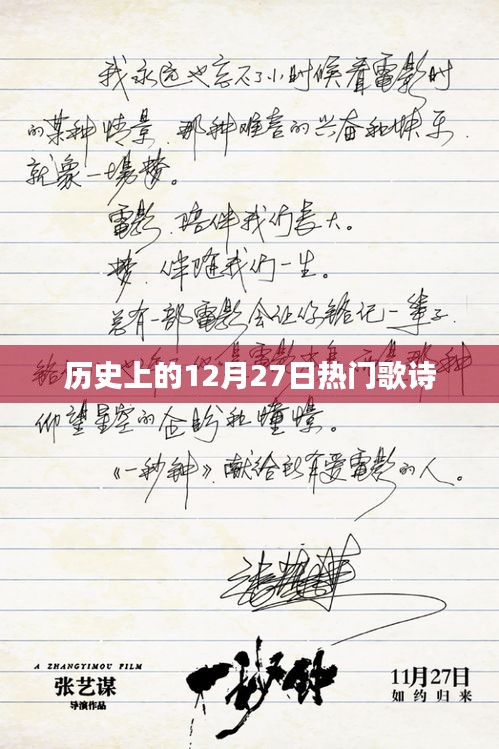 我永远也忘不了小时候看電影时
的某种情景，那种难言的兴奋和快乐，
就象一場梦。
電影，陪伴我们長大。
梦，伴随我们一生。
总有一部電影会让你銘记一辈子，
历史上的12月27日热门歌诗
仰望星空的企盼和憧憬。
《一秒钟》，献给所有爱電影的人。
A ZHANGYIMOU FILM
张艺谋
导演作品
一秒钟
11月27日
如约归来